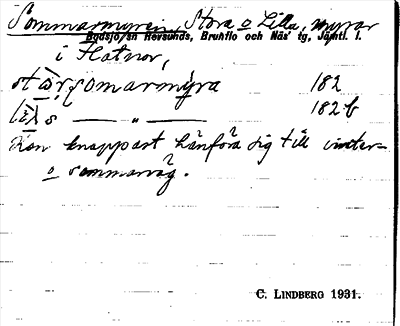 Sommarmyren, Stora o Lilla, myrar
Bodsjö sn Revsunds, Brunflo och Näs' tg, Jämtl. l.
i Flatnor,
182
182 b
Kan knappast hänföra sig till vinter-
o sommarväg.
C. LINDBERG 1931.